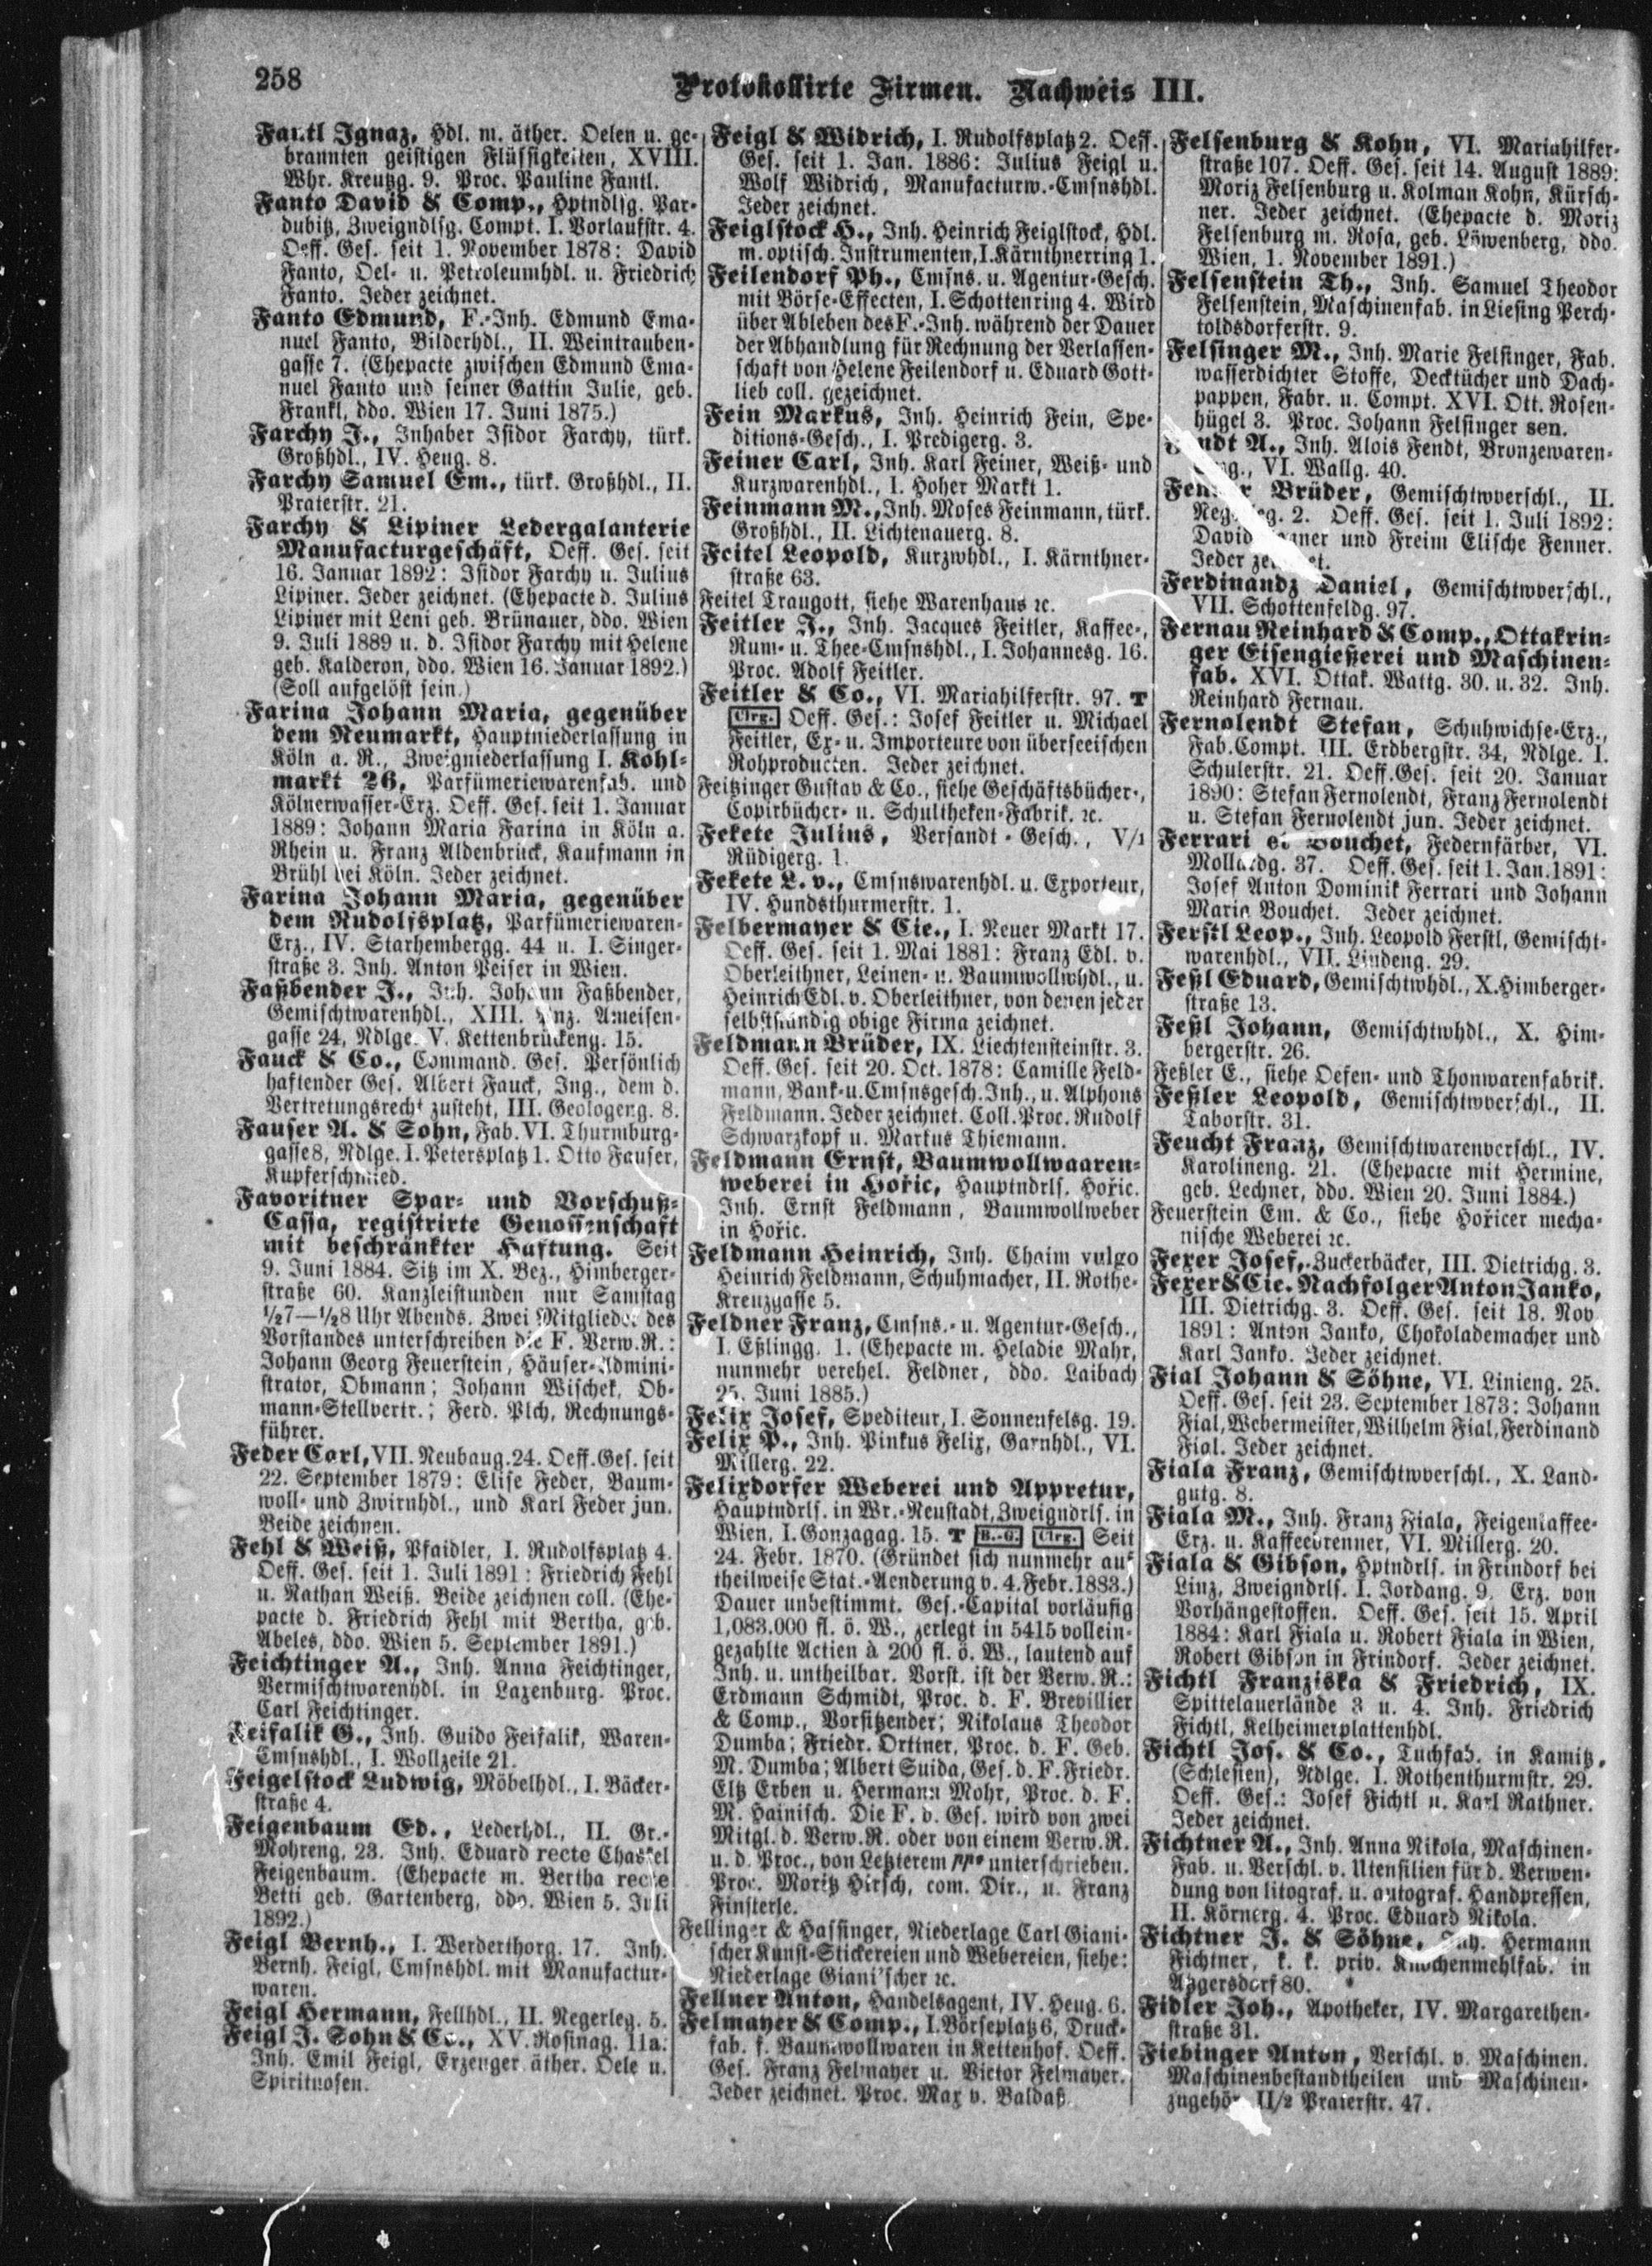 258
Protokollirte Firmen. Nachweis III.
Fantl Ignaz, Hdl. m. äther. Oelen u. ge-
brannten geistigen Flüssigkeiten, XVIII.
Whr. Kreutzg. 9. Proc. Pauline Fantl.
Fanto David & Comp., Hptndlsg. Par-
dubitz, Zweigndlsg. Compt. I. Vorlaufstr. 4.
Oeff. Ges. seit 1. November 1878: David
Fanto, Oel- u. Petroleumhdl. u. Friedrich
Fanto. Jeder zeichnet.
Fanto Edmund, F.-Inh. Edmund Ema-
nuel Fanto, Bilderhdl., II. Weintrauben-
gasse 7. (Ehepacte zwischen Edmund Ema-
nuel Fanto und seiner Gattin Julie, geb.
Frankl, ddo. Wien 17. Juni 1875.)
Farchy J., Inhaber Isidor Farchy, türk.
Großhdl., IV. Heug. 8.
Farchy Samuel Em., türk. Großhdl., II.
Praterstr. 21.
Farchy & Lipiner Ledergalanterie
Manufacturgeschäft, Oeff. Ges. seit
16. Januar 1892: Isidor Farchy u. Julius
Lipiner. Jeder zeichnet. (Ehepacte d. Julius
Lipiner mit Leni geb. Brünauer, ddo. Wien
9. Juli 1889 u. d. Isidor Farchy mit Helene
geb. Kalderon, ddo. Wien 16. Januar 1892.)
(Soll aufgelöst sein.)
Farina Johann Maria, gegenüber
dem Neumarkt, Hauptniederlassung in
Köln a. R., Zweigniederlassung I. Kohl-
markt 26, Parfümeriewarenfab. und
Kölnerwasser-Erz. Oeff. Ges. seit 1. Januar
1889: Johann Maria Farina in Köln a.
Rhein u. Franz Aldenbrück, Kaufmann in
Brühl bei Köln. Jeder zeichnet.
Farina Johann Maria, gegenüber
dem Rudolfsplatz, Parfümeriewaren-
Erz., IV. Starhembergg. 44 u. I. Singer-
straße 3. Inh. Anton Peiser in Wien.
Faßbender J., Inh. Johann Faßbender,
Gemischtwarenhdl., XIII. Pnz. Ameisen-
gasse 24, Ndlge. V. Kettenbrückeng. 15.
Fauck & Co., Command. Ges. Persönlich
haftender Ges. Albert Fauck, Ing., dem d.
Vertretungsrecht zusteht, III. Geologeng. 8.
Fauser A. & Sohn, Fab. VI. Thurmburg-
gasse 8, Ndlge. I. Petersplatz 1. Otto Fauser,
Kupferschmied.
Favoritner Spar- und Vorschuß-
Cassa, registrirte Genossenschaft
mit beschränkter Haftung. Seit
9. Juni 1884. Sitz im X. Bez., Himberger-
straße 60. Kanzleistunden nur Samstag
½7—½8 Uhr Abends. Zwei Mitglieder des
Vorstandes unterschreiben die F. Verw.R.:
Johann Georg Feuerstein, Häuser-Admini-
strator, Obmann; Johann Wischek, Ob-
mann-Stellvertr.; Ferd. Plch, Rechnungs-
führer.
Feder Carl, VII. Neubaug. 24. Oeff. Ges. seit
22. September 1879: Elise Feder, Baum-
woll- und Zwirnhdl., und Karl Feder jun.
Beide zeichnen.
Fehl & Weiß, Pfaidler, I. Rudolfsplatz 4.
Oeff. Ges. seit 1. Juli 1891: Friedrich Fehl
u. Nathan Weiß. Beide zeichnen coll. (Ehe-
pacte d. Friedrich Fehl mit Bertha, geb.
Abeles, ddo. Wien 5. September 1891.)
Feichtinger A., Inh. Anna Feichtinger,
Vermischtwarenhdl. in Laxenburg. Proc.
Carl Feichtinger.
Feifalik G., Inh. Guido Feifalik, Waren-
Cmsnshdl., I. Wollzeile 21.
Feigelstock Ludwig, Möbelhdl., I. Bäcker-
straße 4.
Feigenbaum Ed., Lederhdl., II. Gr.-
Mohreng. 23. Inh. Eduard recte Chaskel
Feigenbaum. (Ehepacte m. Bertha recte
Betti geb. Gartenberg, ddo. Wien 5. Juli
1892.)
Feigl Bernh., I. Werderthorg. 17. Inh.
Bernh. Feigl, Cmsnshdl. mit Manufactur-
waren.
Feigl Hermann, Fellhdl., II. Negerleg. 5.
Feigl J. Sohn & Co., XV. Rosinag. 11a.
Inh. Emil Feigl, Erzeuger äther. Oele u.
Spirituosen.
Feigl & Widrich, I. Rudolfsplatz 2. Oeff.
Ges. seit 1. Jan. 1886: Julius Feigl u.
Wolf Widrich, Manufacturw.-Cmsnshdl.
Jeder zeichnet.
Feiglstock H., Inh. Heinrich Feiglstock, Hdl.
m. optisch. Instrumenten, I. Kärnthnerring 1.
Feilendorf Ph., Cmsns. u. Agentur-Gesch.
mit Börse-Effecten, I. Schottenring 4. Wird
über Ableben des F.-Inh. während der Dauer
der Abhandlung für Rechnung der Verlassen-
schaft von Helene Feilendorf u. Eduard Gott-
lieb coll. gezeichnet.
Fein Markus, Inh. Heinrich Fein, Spe-
ditions-Gesch., I. Predigerg. 3.
Feiner Carl, Inh. Karl Feiner, Weiß- und
Kurzwarenhdl., I. Hoher Markt 1.
Feinmann M., Inh. Moses Feinmann, türk.
Großhdl., II. Lichtenauerg. 8.
Feitel Leopold, Kurzwhdl., I. Kärnthner-
straße 63.
Feitel Traugott, siehe Warenhaus ꝛc.
Feitler J., Inh. Jacques Feitler, Kaffee-,
Rum- u. Thee-Cmsnshdl., I. Johannesg. 16.
Proc. Adolf Feitler.
Feitler & Co., VI. Mariahilferstr. 97. T
Clrg. Oeff. Ges.: Josef Feitler u. Michael
Feitler, Ex- u. Importeure von überseeischen
Rohproducten. Jeder zeichnet.
Feitzinger Gustav & Co., siehe Geschäftsbücher-,
Copirbücher- u. Schultheken-Fabrik. ꝛc.
Fekete Julius, Versandt-Gesch., V/1
Rüdigerg. 1.
Fekete L. v., Cmsnswarenhdl. u. Exporteur,
IV. Hundsthurmerstr. 1.
Felbermayer & Cie., I. Neuer Markt 17.
Oeff. Ges. seit 1. Mai 1881: Franz Edl. v.
Oberleithner, Leinen- u. Baumwollwhdl., u.
Heinrich Edl. v. Oberleithner, von denen jeder
selbstständig obige Firma zeichnet.
Feldmann Brüder, IX. Liechtensteinstr. 3.
Oeff. Ges. seit 20. Oct. 1878: Camille Feld-
mann, Bank- u. Cmsnsgesch. Inh., u. Alphons
Feldmann. Jeder zeichnet. Coll. Proc. Rudolf
Schwarzkopf u. Markus Thiemann.
Feldmann Ernst, Baumwollwaaren-
weberei in Hořic, Hauptndrls. Hořic.
Inh. Ernst Feldmann, Baumwollweber
in Hořic.
Feldmann Heinrich, Inh. Chaim vulgo
Heinrich Feldmann, Schuhmacher, II. Rothe-
Kreuzgasse 5.
Feldner Franz, Cmsns.- u. Agentur-Gesch.,
I. Eßlingg. 1. (Ehepacte m. Heladie Mahr,
nunmehr verehel. Feldner, ddo. Laibach
25. Juni 1885.)
Felix Josef, Spediteur, I. Sonnenfelsg. 19.
Felix P., Inh. Pinkus Felix, Garnhdl., VI.
Millerg. 22.
Felixdorfer Weberei und Appretur,
Hauptndrls. in Wr.-Neustadt, Zweigndrls. in
Wien, I. Gonzagag. 15. T B.-G. Clrg. Seit
24. Febr. 1870. (Gründet sich nunmehr auf
theilweise Stat.-Aenderung v. 4. Febr. 1883.)
Dauer unbestimmt. Ges.-Capital vorläufig
1,083.000 fl. ö. W., zerlegt in 5415 vollein-
gezahlte Actien à 200 fl. ö. W., lautend auf
Inh. u. untheilbar. Vorst. ist der Verw. R.:
Erdmann Schmidt, Proc. d. F. Brevillier
& Comp., Vorsitzender; Nikolaus Theodor
Dumba; Friedr. Ortner, Proc. d. F. Geb.
M. Dumba; Albert Suida, Ges. d. F. Friedr.
Eltz Erben u. Hermann Mohr, Proc. d. F.
M. Hainisch. Die F. d. Ges. wird von zwei
Mitgl. d. Verw.R. oder von einem Verw.R.
u. d. Proc., von Letzterem ppa unterschrieben.
Proc. Moritz Hirsch, com. Dir., u. Franz
Finsterle.
Fellinger & Hassinger, Niederlage Carl Giani-
scher Kunst-Stickereien und Webereien, siehe:
Niederlage Giani'scher ꝛc.
Fellner Anton, Handelsagent, IV. Heug. 6.
Felmayer & Comp., I. Börseplatz 6, Druck-
fab. f. Baumwollwaren in Kettenhof. Oeff.
Ges. Franz Felmayer u. Victor Felmayer.
Jeder zeichnet. Proc. Max v. Baldaß.
Felsenburg & Kohn, VI. Mariahilfer-
straße 107. Oeff. Ges. seit 14. August 1889:
Moriz Felsenburg u. Kolman Kohn, Kürsch-
ner. Jeder zeichnet. (Ehepacte d. Moriz
Felsenburg m. Rosa, geb. Löwenberg, ddo.
Wien, 1. November 1891.)
Felsenstein Th., Inh. Samuel Theodor
Felsenstein, Maschinenfab. in Liesing Perch-
toldsdorferstr. 9.
Felsinger M., Inh. Marie Felsinger, Fab.
wasserdichter Stoffe, Decktücher und Dach-
pappen, Fabr. u. Compt. XVI. Ott. Rosen-
hügel 3. Proc. Johann Felsinger sen.
A., Inh. Alois Fendt, Bronzewaren-
VI. Wallg. 40.
Brüder, Gemischtwverschl., II.
2. Oeff. Ges. seit 1. Juli 1892:
David und Freim Elische Fenner.
Jeder
Ferdinandz Daniel, Gemischtwverschl.,
VII. Schottenfeldg. 97.
Fernau Reinhard & Comp., Ottakrin-
ger Eisengießerei und Maschinen-
fab. XVI. Ottak. Wattg. 30. u. 32. Inh.
Reinhard Fernau.
Fernolendt Stefan, Schuhwichse-Erz.,
Fab. Compt. III. Erdbergstr. 34, Ndlge. I.
Schulerstr. 21. Oeff. Ges. seit 20. Januar
1890: Stefan Fernolendt, Franz Fernolendt
u. Stefan Fernolendt jun. Jeder zeichnet.
Ferrari et Bouchet, Federnfärber, VI.
Mollardg. 37. Oeff. Ges. seit 1. Jan. 1891:
Josef Anton Dominik Ferrari und Johann
Maria Bouchet. Jeder zeichnet.
Ferstl Leop., Inh. Leopold Ferstl, Gemischt-
warenhdl., VII. Lindeng. 29.
Feßl Eduard, Gemischtwhdl., X. Himberger-
straße 13.
Feßl Johann, Gemischtwhdl., X. Him-
bergerstr. 26.
Feßler E., siehe Oefen- und Thonwarenfabrik.
Feßler Leopold, Gemischtwverschl., II.
Taborstr. 31.
Feucht Franz, Gemischtwarenverschl., IV.
Karolineng. 21. (Ehepacte mit Hermine,
geb. Lechner, ddo. Wien 20. Juni 1884.)
Feuerstein Em. & Co., siehe Hořicer mecha-
nische Weberei ꝛc.
Fexer Josef, Zuckerbäcker, III. Dietrichg. 3.
Fexer & Cie. Nachfolger Anton Janko,
III. Dietrichg. 3. Oeff. Ges. seit 18. Nov.
1891: Anton Janko, Chokolademacher und
Karl Janko. Jeder zeichnet.
Fial Johann & Söhne, VI. Linieng. 25.
Oeff. Ges. seit 23. September 1873: Johann
Fial, Webermeister, Wilhelm Fial, Ferdinand
Fial. Jeder zeichnet.
Fiala Franz, Gemischtwverschl., X. Land-
gutg. 8.
Fiala M., Inh. Franz Fiala, Feigenkaffee-
Erz. u. Kaffeebrenner, VI. Millerg. 20.
Fiala & Gibson, Hptndrls. in Frindorf bei
Linz, Zweigndrls. I. Jordang. 9. Erz. von
Vorhängestoffen. Oeff. Ges. seit 15. April
1884: Karl Fiala u. Robert Fiala in Wien,
Robert Gibson in Frindorf. Jeder zeichnet.
Fichtl Franziska & Friedrich, IX.
Spittelauerlände 3 u. 4. Inh. Friedrich
Fichtl, Kelheimerplattenhdl.
Fichtl Jos. & Co., Tuchfab. in Kamitz,
(Schlesien), Ndlge. I. Rothenthurmstr. 29.
Oeff. Ges.: Josef Fichtl u. Karl Rathner.
Jeder zeichnet.
Fichtner A., Inh. Anna Nikola, Maschinen-
Fab. u. Verschl. v. Utensilien für d. Verwen-
dung von litograf. u. autograf. Handpressen,
II. Körnerg. 4. Proc. Eduard Nikola.
Fichtner J. & Söhne, Inh. Hermann
Fichtner, k. k. priv. Knochenmehlfab. in
Atzgersdorf 80.
Fidler Joh., Apotheker, IV. Margarethen-
straße 31.
Fiebinger Anton, Verschl. v. Maschinen.
Maschinenbestandtheilen und Maschinen-
zugehör II/2 Praterstr. 47.